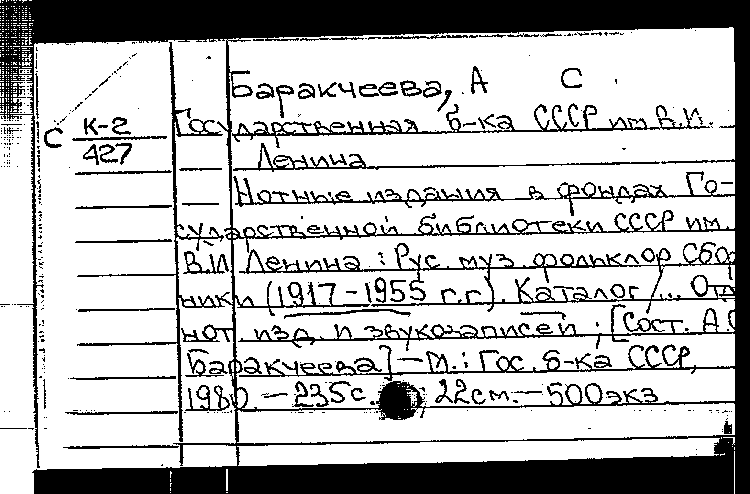 Баракчеева, А С
С К-2 Государственная б-ка СССР им. В.И.
427 Ленина
— Нотные издания в фондах Го-
сударственной библиотеки СССР им.
В.И. Ленина : Рус. муз. фольклор Сбо
ники (1917-1955 г.г). Каталог / ... Отд
нот. изд. и звукозаписей ; [Сост. А.С
Баракчеева] — М.: Гос. б-ка СССР,
1980. — 235 с. ; 22 см. — 500 экз